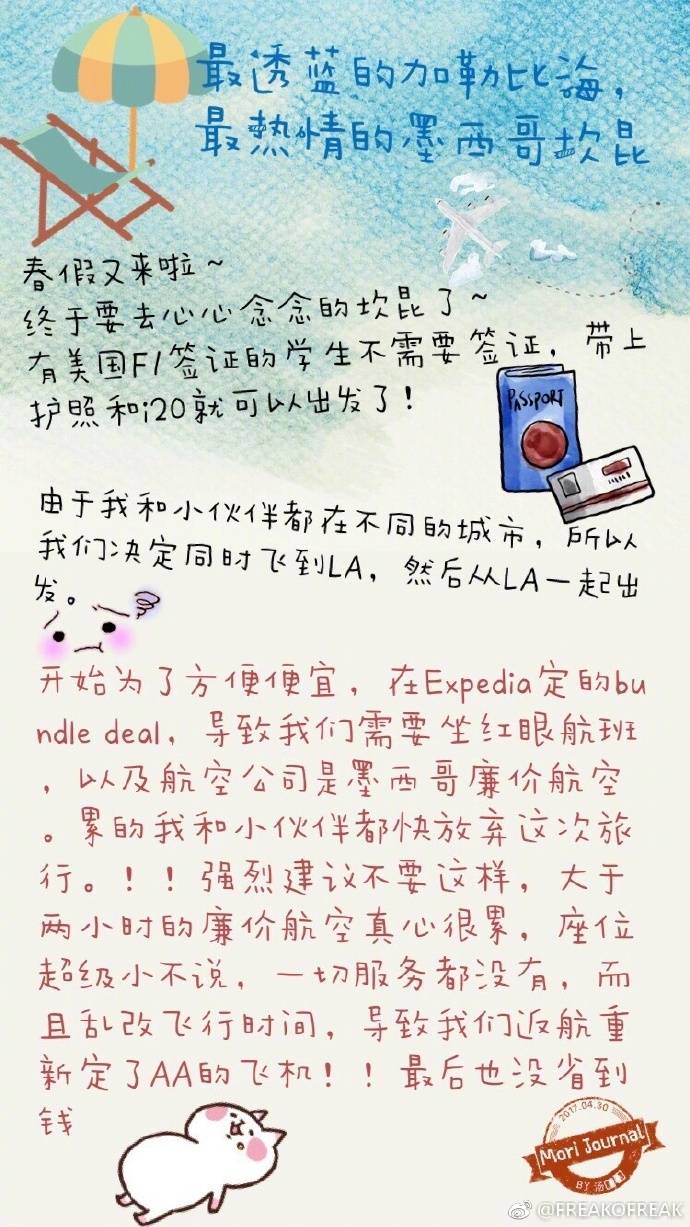 最透蓝的加勒比海，
最熱情的墨西哥坎昆
春假又来啦~
终于要去心心念念的坎昆了~
有美国F1签证的学生不需要签证，带上
护照和i20就可以出发了！
PASSPORT
由于我和小伙伴都在不同的城市，所以
我们决定同时飞到LA，然后从LA一起出
发。
开始为了方便便宜，在Expedia定的bu
ndle deal，导致我们需要坐红眼航班
，以及航空公司是墨西哥廉价航空
。累的我和小伙伴都快放弃这次旅
行。！！强烈建议不要这样，大于
两小时的廉价航空真心很累，座位
超级小不说，一切服务都没有，而
且乱改飞行时间，导致我们返航重
新定了AA的飞机！！最后也没省到
钱
2017.04.30
Mori Journal
BY 汤
@FREAKOFREAK